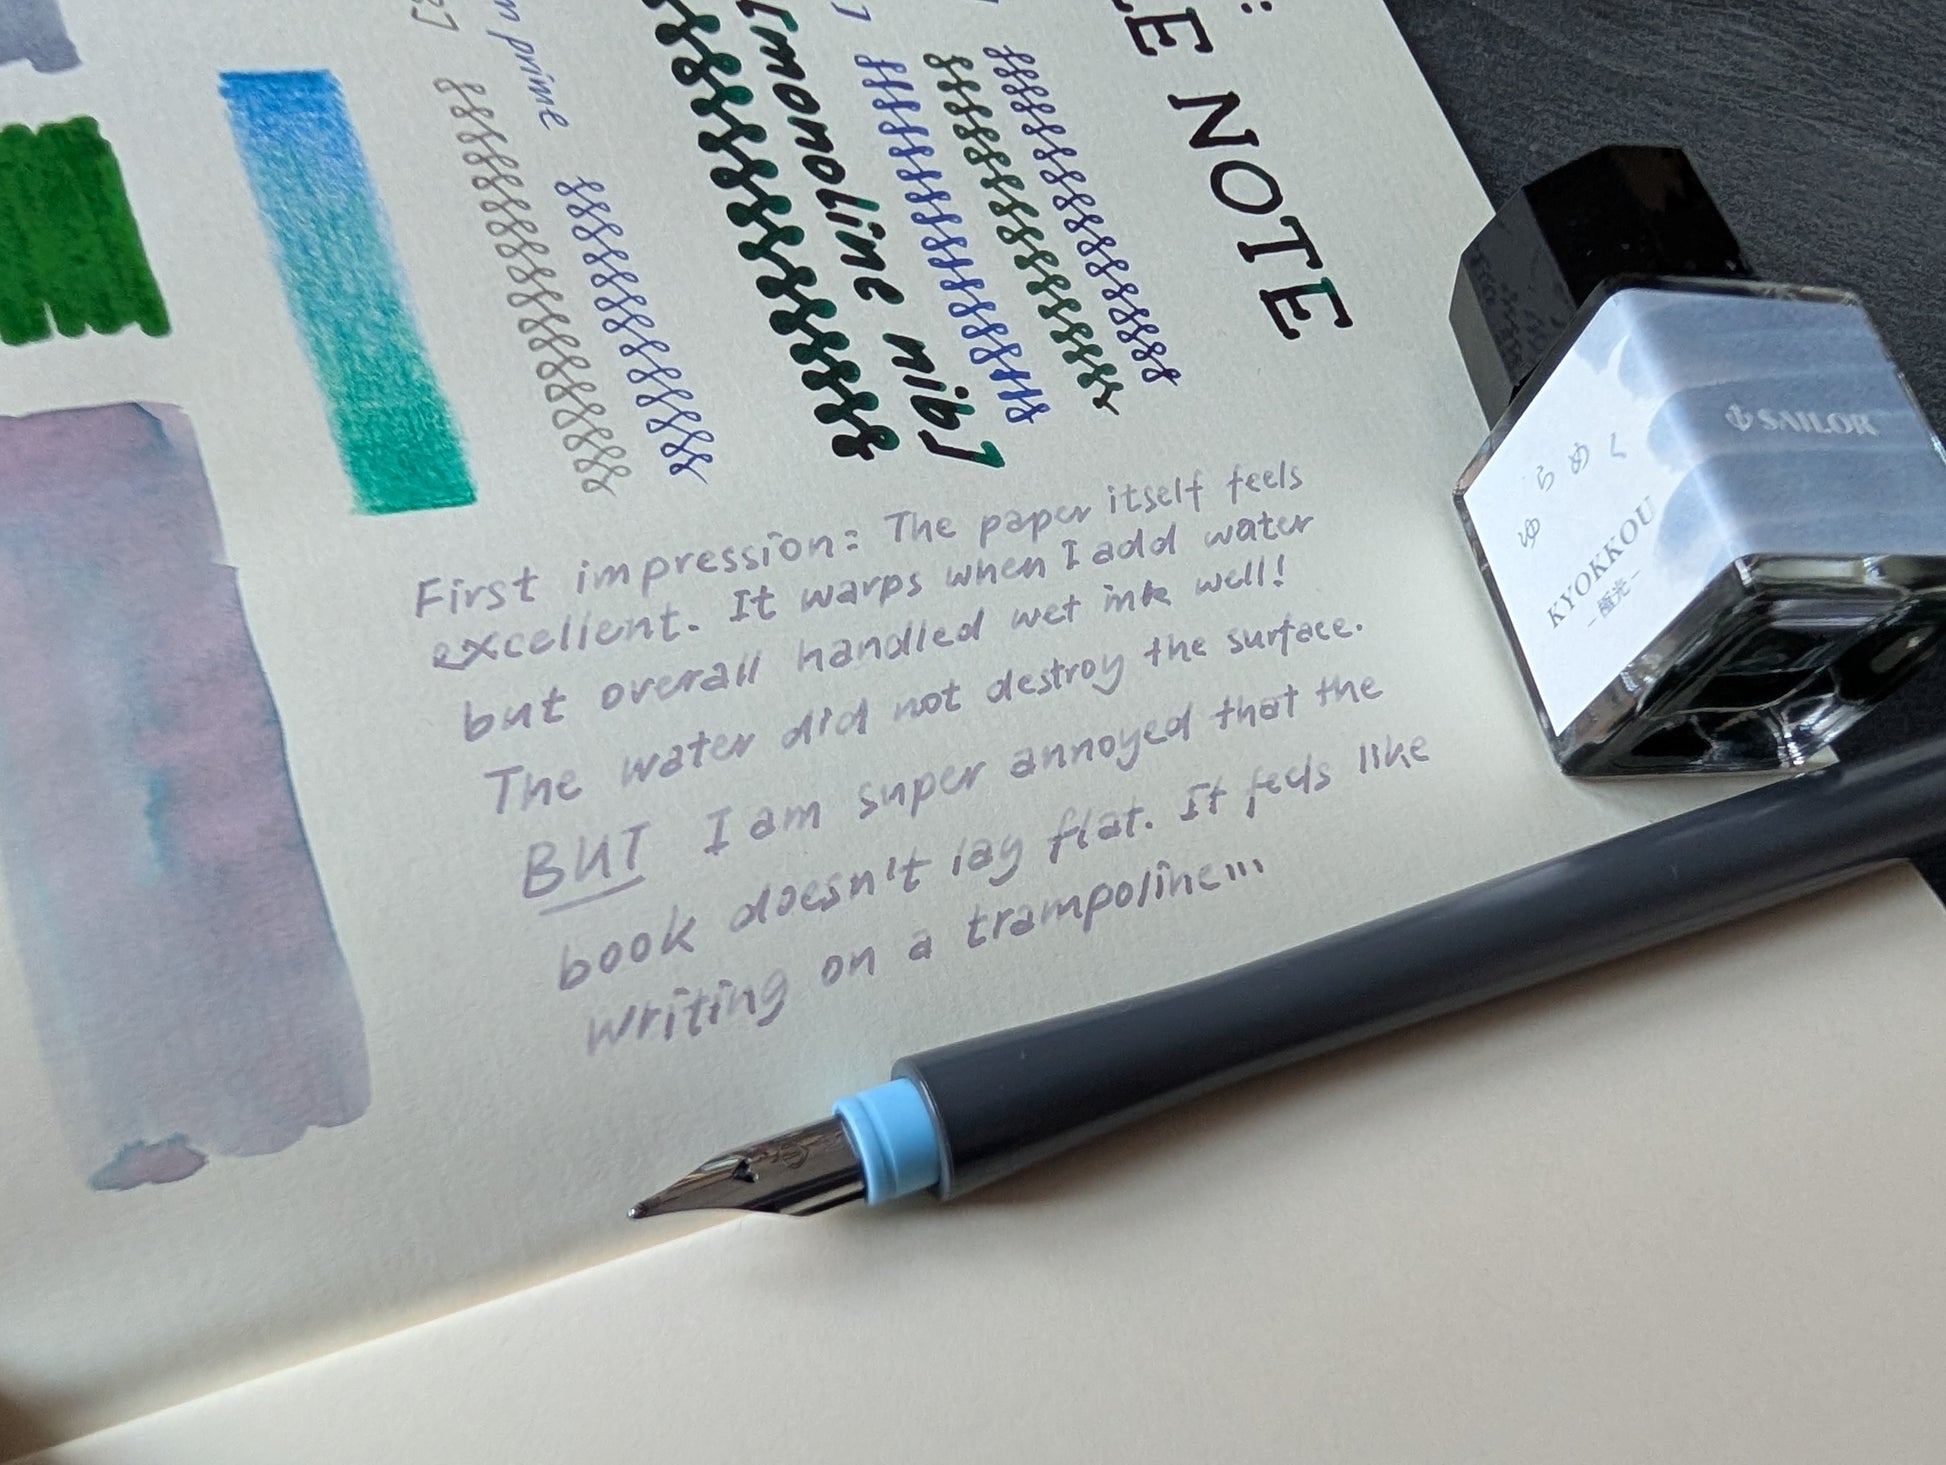 NOTE
n prime
[qin, uniformly
First impression: The paper itself feels
excellent. It warps when I add water
but overall handled wet ink well!
The water did not destroy the surface.
BUT I am super annoyed that the
book doesn't lay flat. It feels like
writing on a trampoline...
SAILOR
ゆらめく
KYOKKOU
-極光-